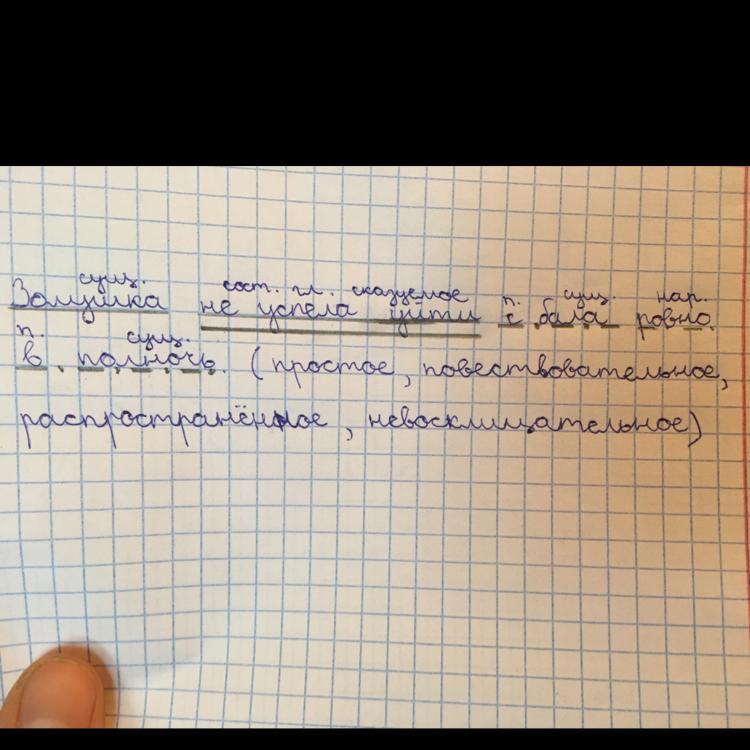 сущ. сост. гл. сказуемое п. сущ. нар.
Золушка не успела уйти с бала ровно
п. сущ.
в полночь. (простое, повествовательное,
распространённое, невосклицательное)